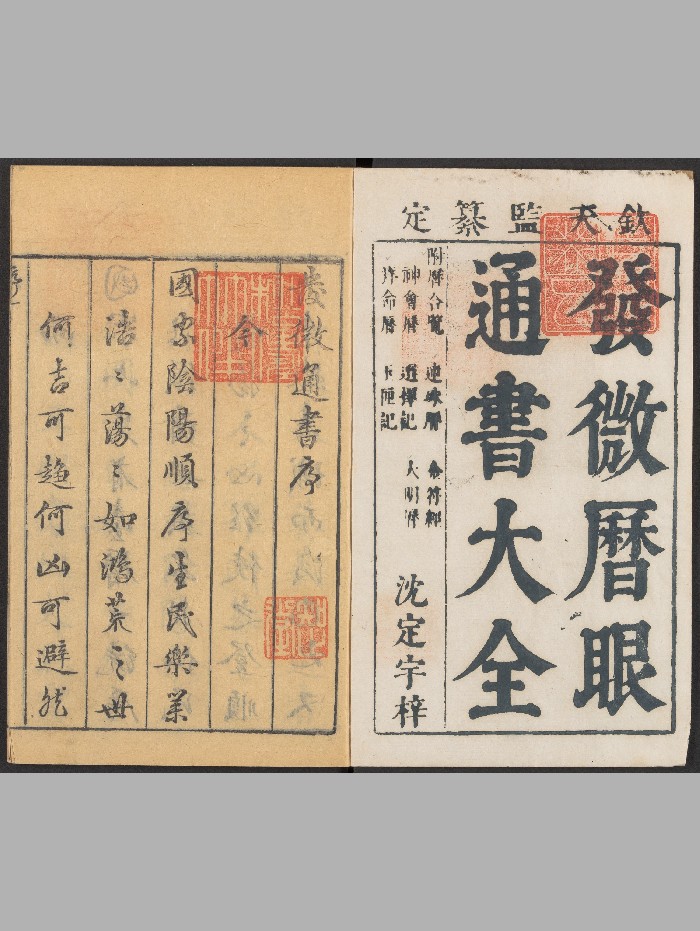 欽天監纂定
發微曆眼
通書大全
附曆合覽
神會曆
選擇記
大明曆
沈定宇梓
發微通書序
今
國家陰陽順序生民樂業
浩〻蕩〻如鴻荒之世
何吉可趨何凶可避然
序一